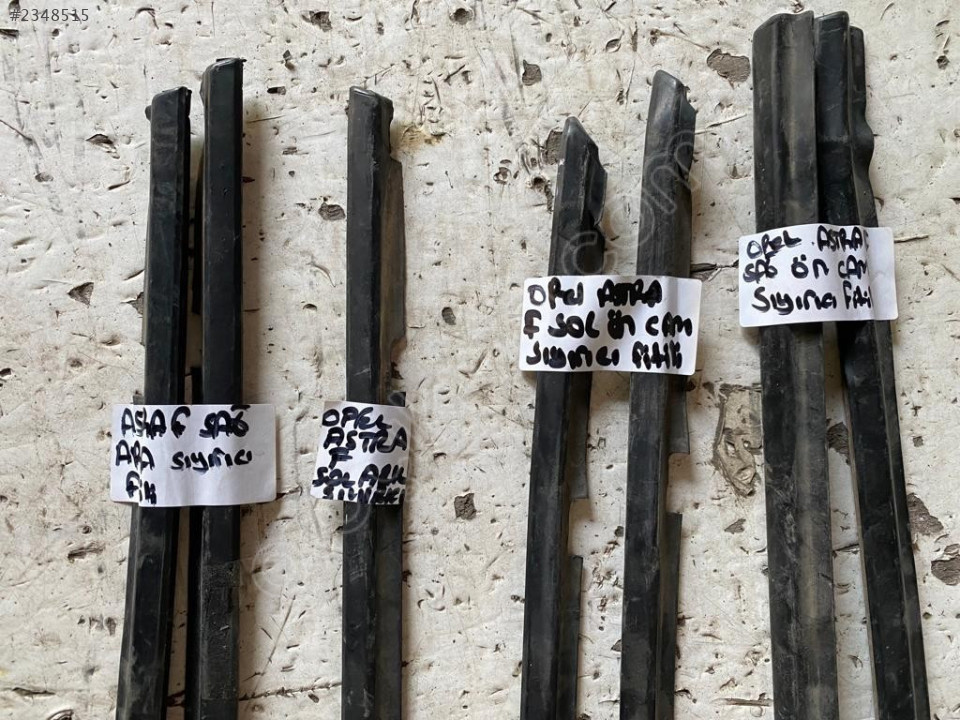 #2348515
ASTRA F SAĞ
ARA SIYIRICI
FİTİL
OPEL
ASTRA
F
SOL ARKA
OPEL ASTRA
F SOL ÖN CAM
SIYIRICI FİTİLİ
OPEL ASTRA
SAĞ ÖN CAM
SIYIRICI FİTİLİ
.com